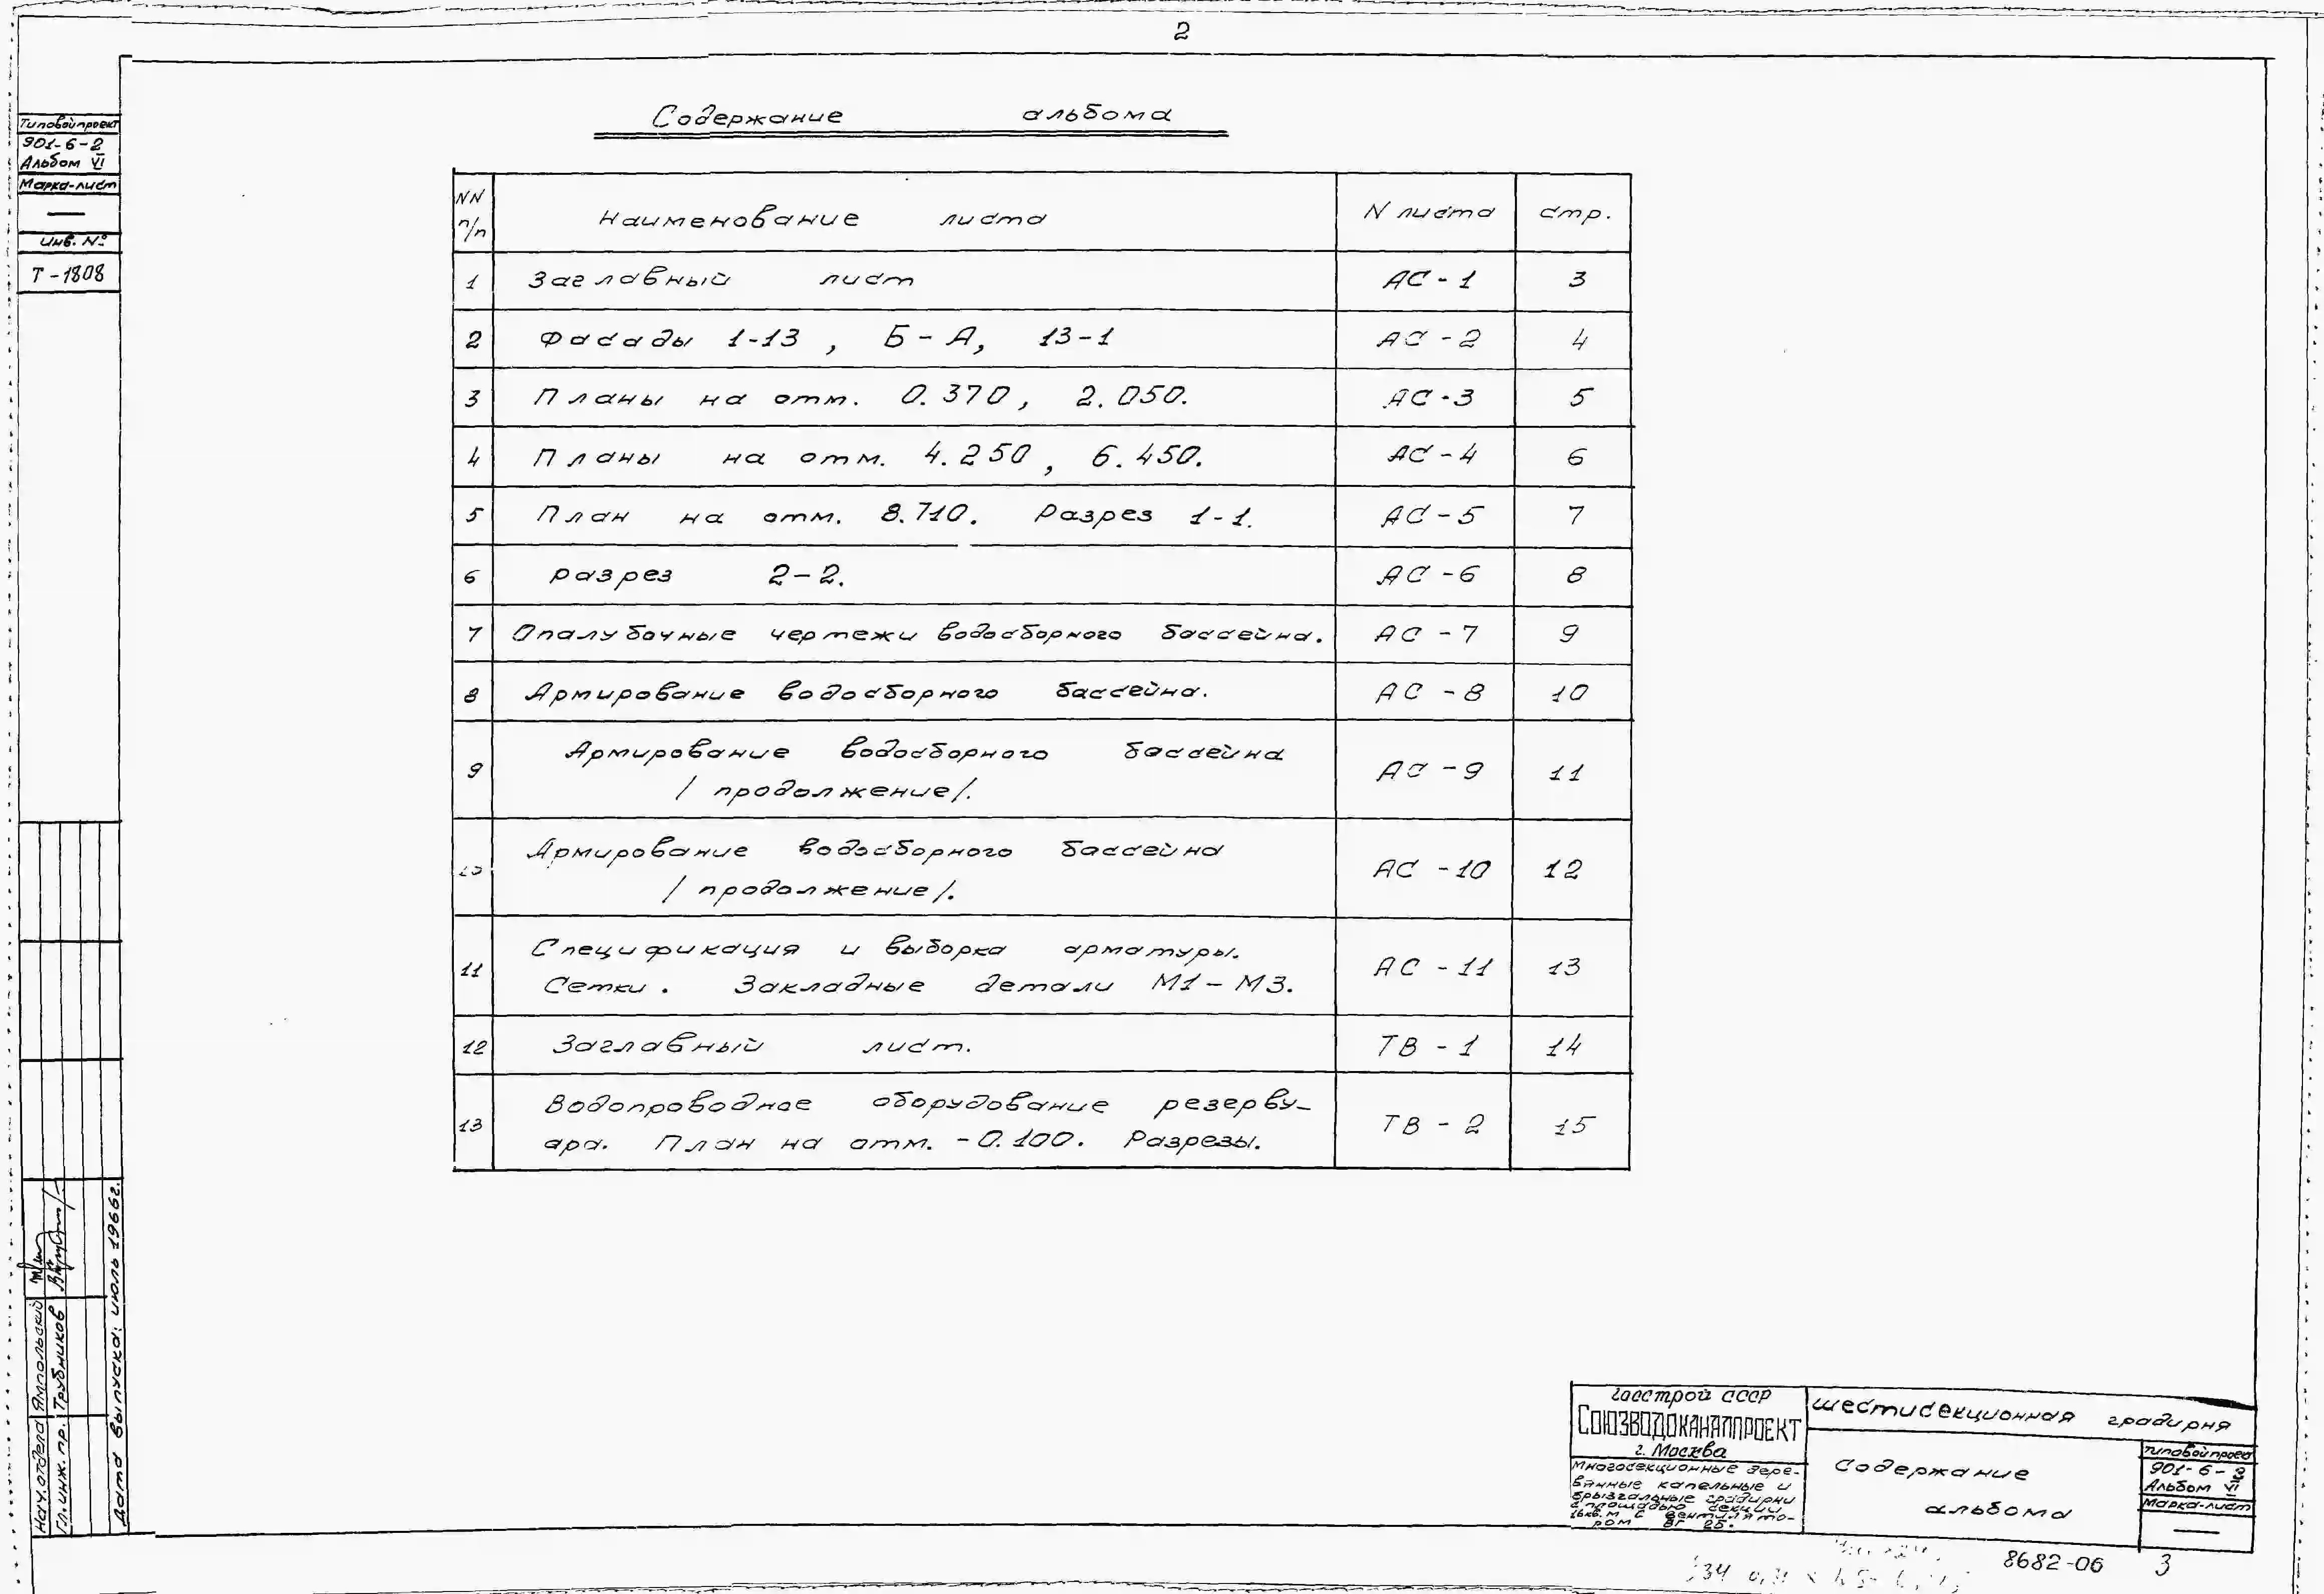 2
Содержание альбома
Типовой проект
901-6-2
Альбом VI
Марка-лист
—
Инв. №
Т-1808
NN п/п Наименование листа N листа стр.
1 Заглавный лист АС-1 3
2 Фасады 1-13, Б-А, 13-1 АС-2 4
3 Планы на отм. 0.370, 2.050. АС-3 5
4 Планы на отм. 4.250, 6.450. АС-4 6
5 План на отм. 8.710. Разрез 1-1. АС-5 7
6 разрез 2-2. АС-6 8
7 Опалубочные чертежи водосборного бассейна. АС-7 9
8 Армирование водосборного бассейна. АС-8 10
9 Армирование водосборного бассейна АС-9 11
/продолжение/.
10 Армирование водосборного бассейна АС-10 12
/продолжение/.
11 Спецификация и выборка арматуры. АС-11 13
Сетки. Закладные детали М1-М3.
12 Заглавный лист. ТВ-1 14
13 Водопроводное оборудование резерву- ТВ-2 15
ара. План на отм. -0.100. Разрезы.
Нач. отдела Ямпольский
Гл. инж. пр. Трубников
Дата выпуска: июль 1966г.
Госстрой СССР
СОЮЗВОДОКАНАЛПРОЕКТ
г. Москва
Многосекционные дере-
вянные капельные и
брызгальные градирни
с площадью секции
16кв.м с вентилято-
ром ВГ 25.
Шестисекционная градирня
Содержание
альбома
Типовой проект
901-6-2
Альбом VI
Марка-лист
—
8682-06 3